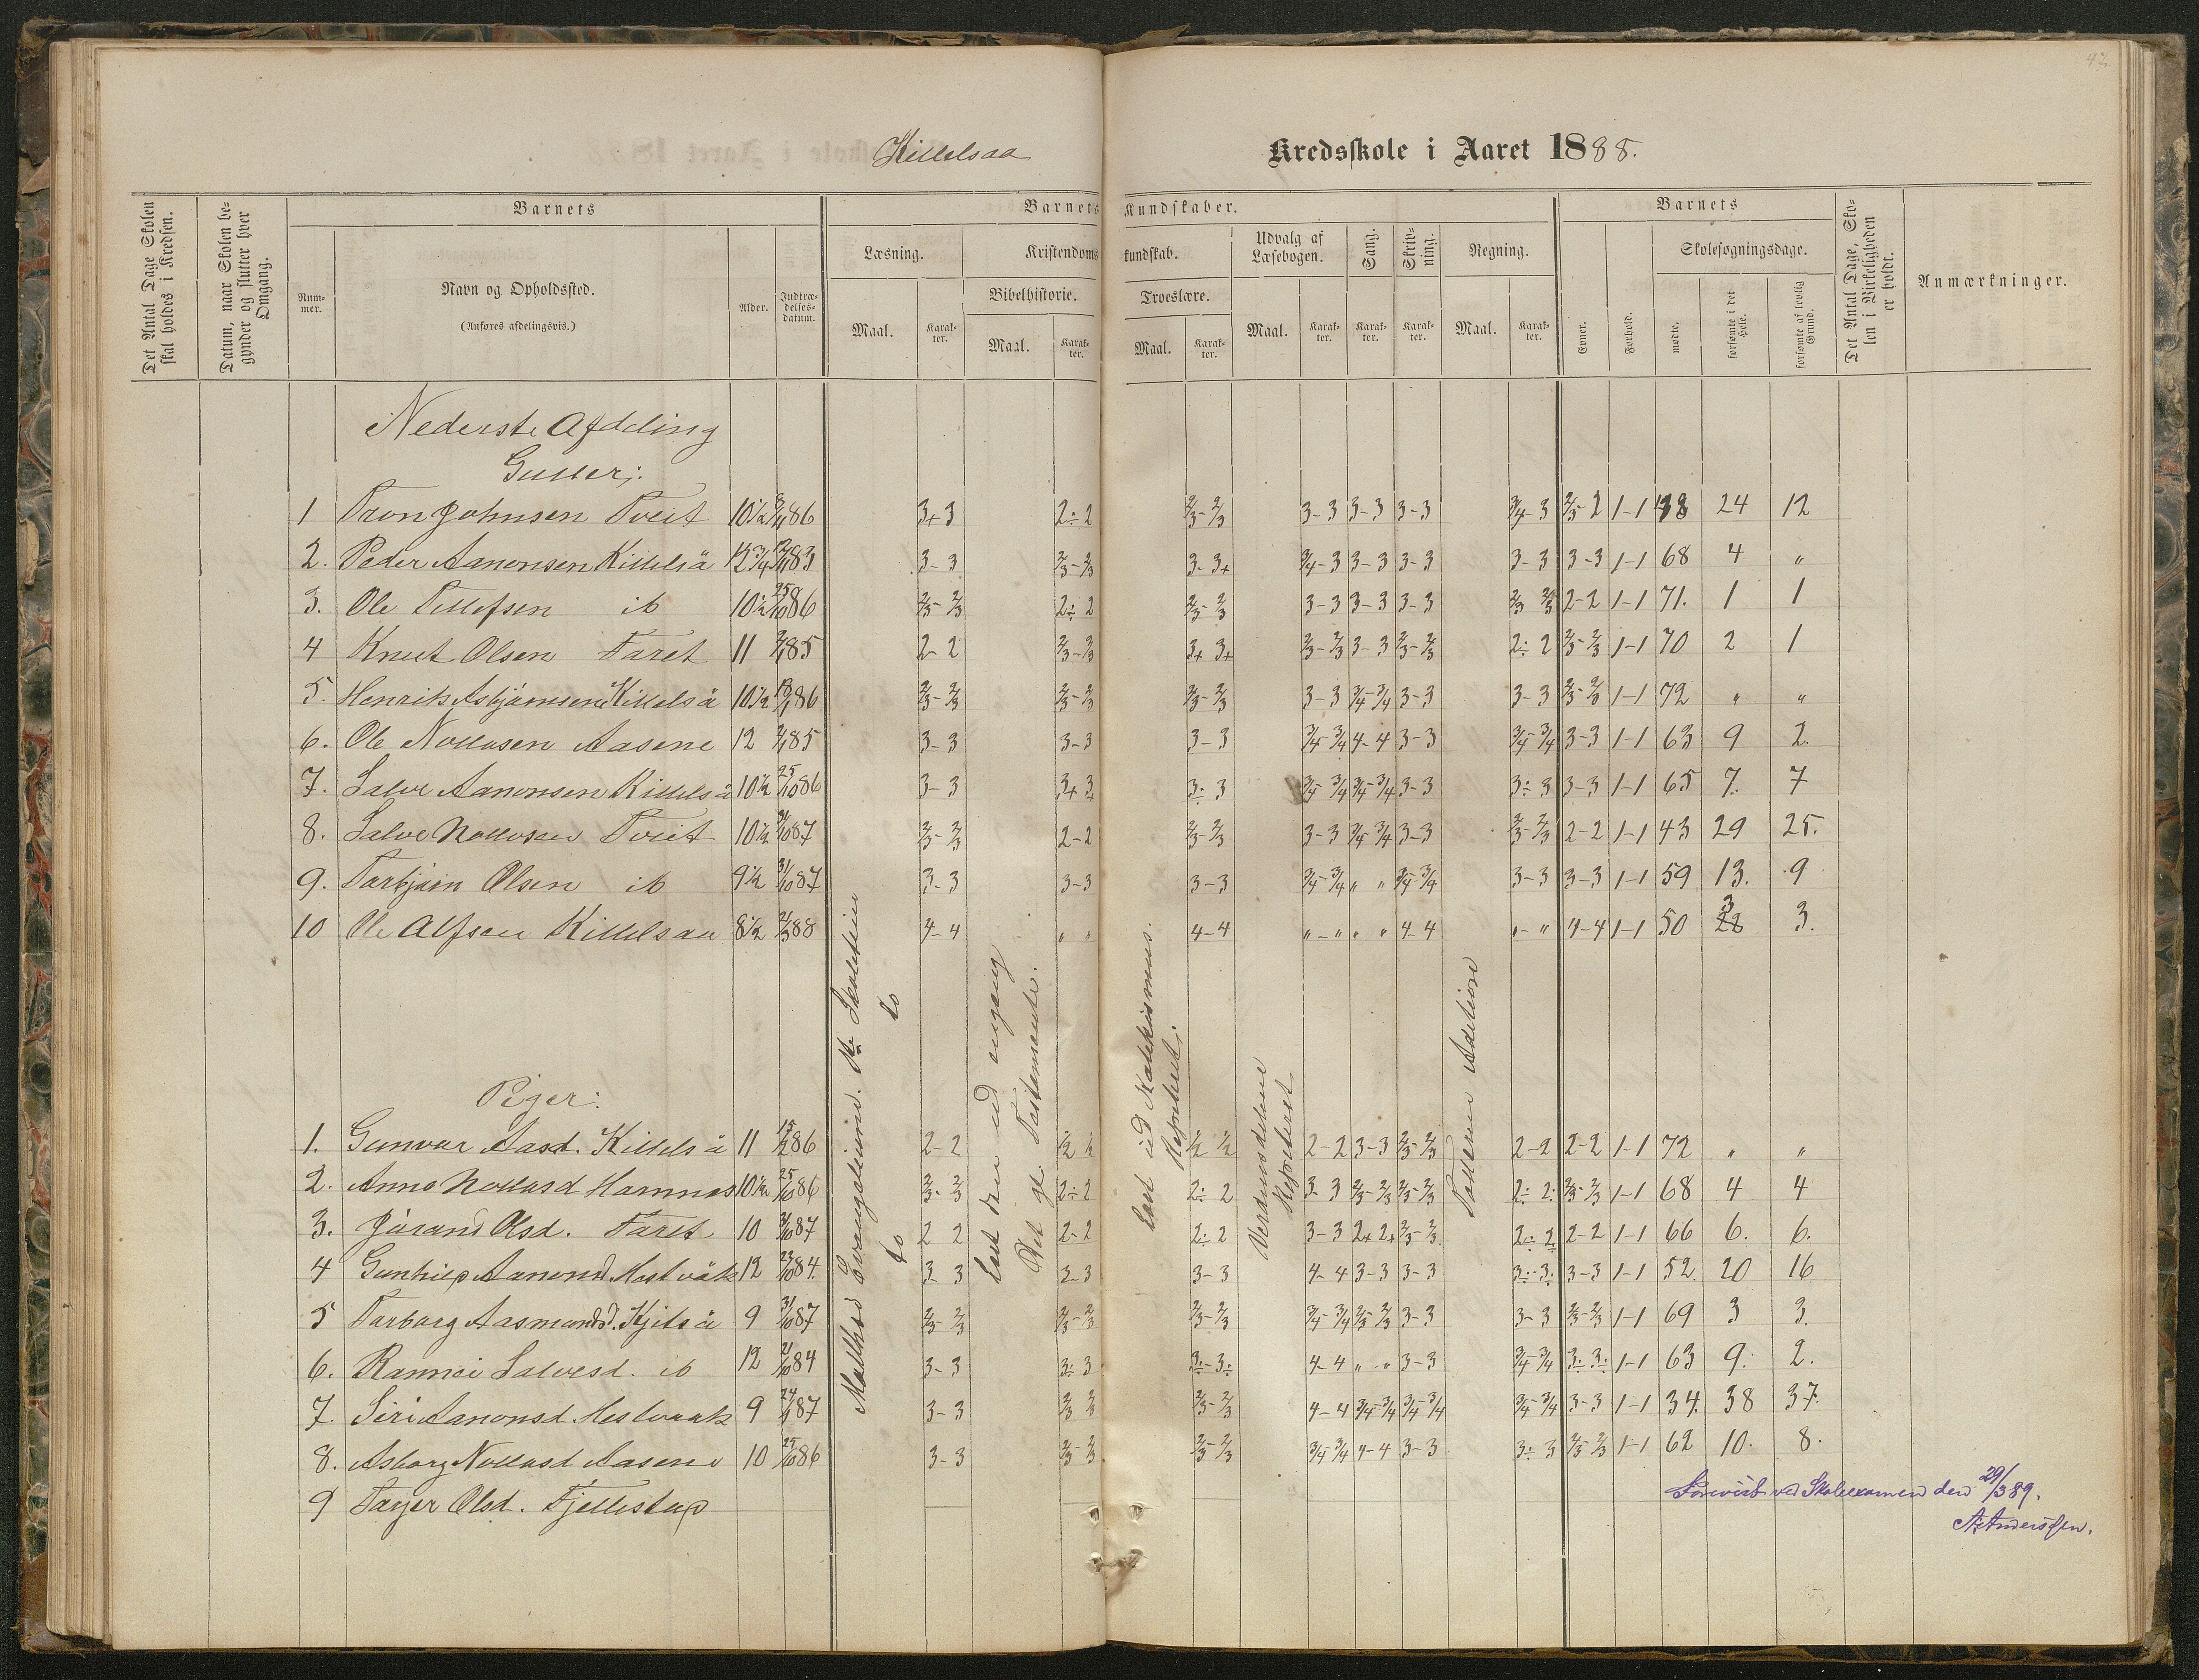 47.
Killelsaa Kredsskole i Aaret 1888.
Det Antal Dage Skolen skal holdes i Kredsen.
Datum, naar Skolen begynder og slutter hver Omgang.
Barnets
Num-mer.
Navn og Opholdssted.
(Anføres afdelingsvis.)
Alder.
Indtræ-delses-datum.
Barnets Kundskaber.
Læsning.
Maal.
Karak-ter.
Kristendoms kundskab.
Bibelhistorie.
Maal.
Karak-ter.
Troeslære.
Maal.
Karak-ter.
Udvalg af Læsebogen.
Maal.
Karak-ter.
Sang.
Karak-ter.
Skriv-ning.
Karak-ter.
Regning.
Maal.
Karak-ter.
Barnets
Evner.
Forhold.
Skolesøgningsdage.
mødte.
forsømte i det Hele.
forsømte af lovlig Grund.
Det Antal Dage, Skolen i Virkeligheden er holdt.
Anmærkninger.
Nederste Afdeling
Gutter;
1 Tron Johnsen Tveit 10½ 86 3+3 2÷2 2/3-2/3 3-3 3-3 3-3 3/4-3 2/3-2 1-1 38 24 12
2. Peder Aanonsen Killelså 12 3/4 83 3-3 2/3-2/3 3-3+ 3/4-3 3-3 3-3 3-3 3-3 1-1 68 4 "
3. Ole Tellefsen ib 10½ 25/10 86 2/3-2/3 2÷2 2/3-2/3 3-3 3-3 3-3 2/3 2/3 2-2 1-1 71. 1 1
4 Knut Olsen Faret 11 85 2-2 2/3-2/3 3+ 3+ 2/3-2/3 3-3 2/3-2/3 2÷2 2/3-2/3 1-1 70 2 1
5. Henrik Asbjørnsen Killelså 10½ 86 2/3-2/3 2/3-2/3 2/3-2/3 3-3 3/4-3/4 3-3 3-3 2/3-2/3 1-1 72 " "
6. Ole Nollusen Aasene 12 85 3-3 3-3 3-3 3/4-3/4 4-4 3-3 3/4-3/4 3-3 1-1 63 9 2.
7. Salve Aanonsen Killelså 10½ 25/10 86 3-3 3+3 3÷3 3/4-3/4 3/4-3/4 3-3 3÷3 3-3 1-1 65 7. 7
8. Salve Nollusen Tveit 10½ 31/10 87 2/3-2/3 2-2 2/3-2/3 3-3 3/4 3/4 3-3 2/3-2/3 2-2 1-1 43 29 25.
9. Torbjörn Olsen ib 9½ 31/10 87 3-3 3-3 3-3 3/4-3/4 " " 3/4-3/4 3-3 3-3 1-1 59 13. 9
10 Ole Alfsen Killelsaa 8½ 88 4-4 " " 4-4 "-" " " 4-4 "-" 4-4 1-1 50 3 28 3.
Piger:
1. Gunvor Aasd. Killelså 11 86 2-2 ½ ½ ½ ½ 2-2 3-3 2/3-2/3 2-2 2-2 1-1 72 " "
2. Anne Nollusd Hamnes 10½ 25/10 86 2/3-2/3 2÷2 2÷2 3-3 2/3-2/3 2/3-2/3 2÷2: 2/3-2/3 1-1 68 4 4
3. Jörand Olsd. Faret 10 31/10 87 2 2 2-2 2÷2 3-3 2+2+ 2/3-2/3 2÷2 2-2 1-1 66 6. 6.
4 Gunhild Aanonsd Hestvåk 12 84. 3-3 3-3 3-3 4-4 3-3 3-3 3÷3÷ 3-3 1-1 52. 20 16
5 Torborg Aasmundsd. Kjitså 9 31/10 87 2/3-2/3 2/3-2/3 2/3-2/3 3/4-3/4 2/3-2/3 3-3 3-3 2/3-2/3 1-1 69 3 3.
6. Rannei Salvesd. ib 12 84 3-3 3÷3 3÷-3÷ 4-4 " " 3-3 3/4-3/4 3÷3÷ 1-1 63 9. 2.
7. Siri Aanonsd. Hestvaak 9 87 3-3 2/3 2/3 2/3-2/3 4-4 3/4-3/4 3/4-3/4 3/4-3/4 3-3 1-1 34. 38 37.
8. Asborg Nollusd Aasene 10 25/10 86 3-3 2/3-2/3 2/3-2/3 3/4-3/4 4-4 3-3 3÷3 2/3-2/3 1-1 62 10. 8.
9 Tayer Olsd. Fjellestup
Matthæ Evangelium.
do do
Læst den ud engang
Det gl. Testamente.
Læst ud Katekismus.
Repeteret.
Verdensdelene
Repeteret
Addition
Forevist ved Skoleexamen den 29/3 89.
A. Anderssen.